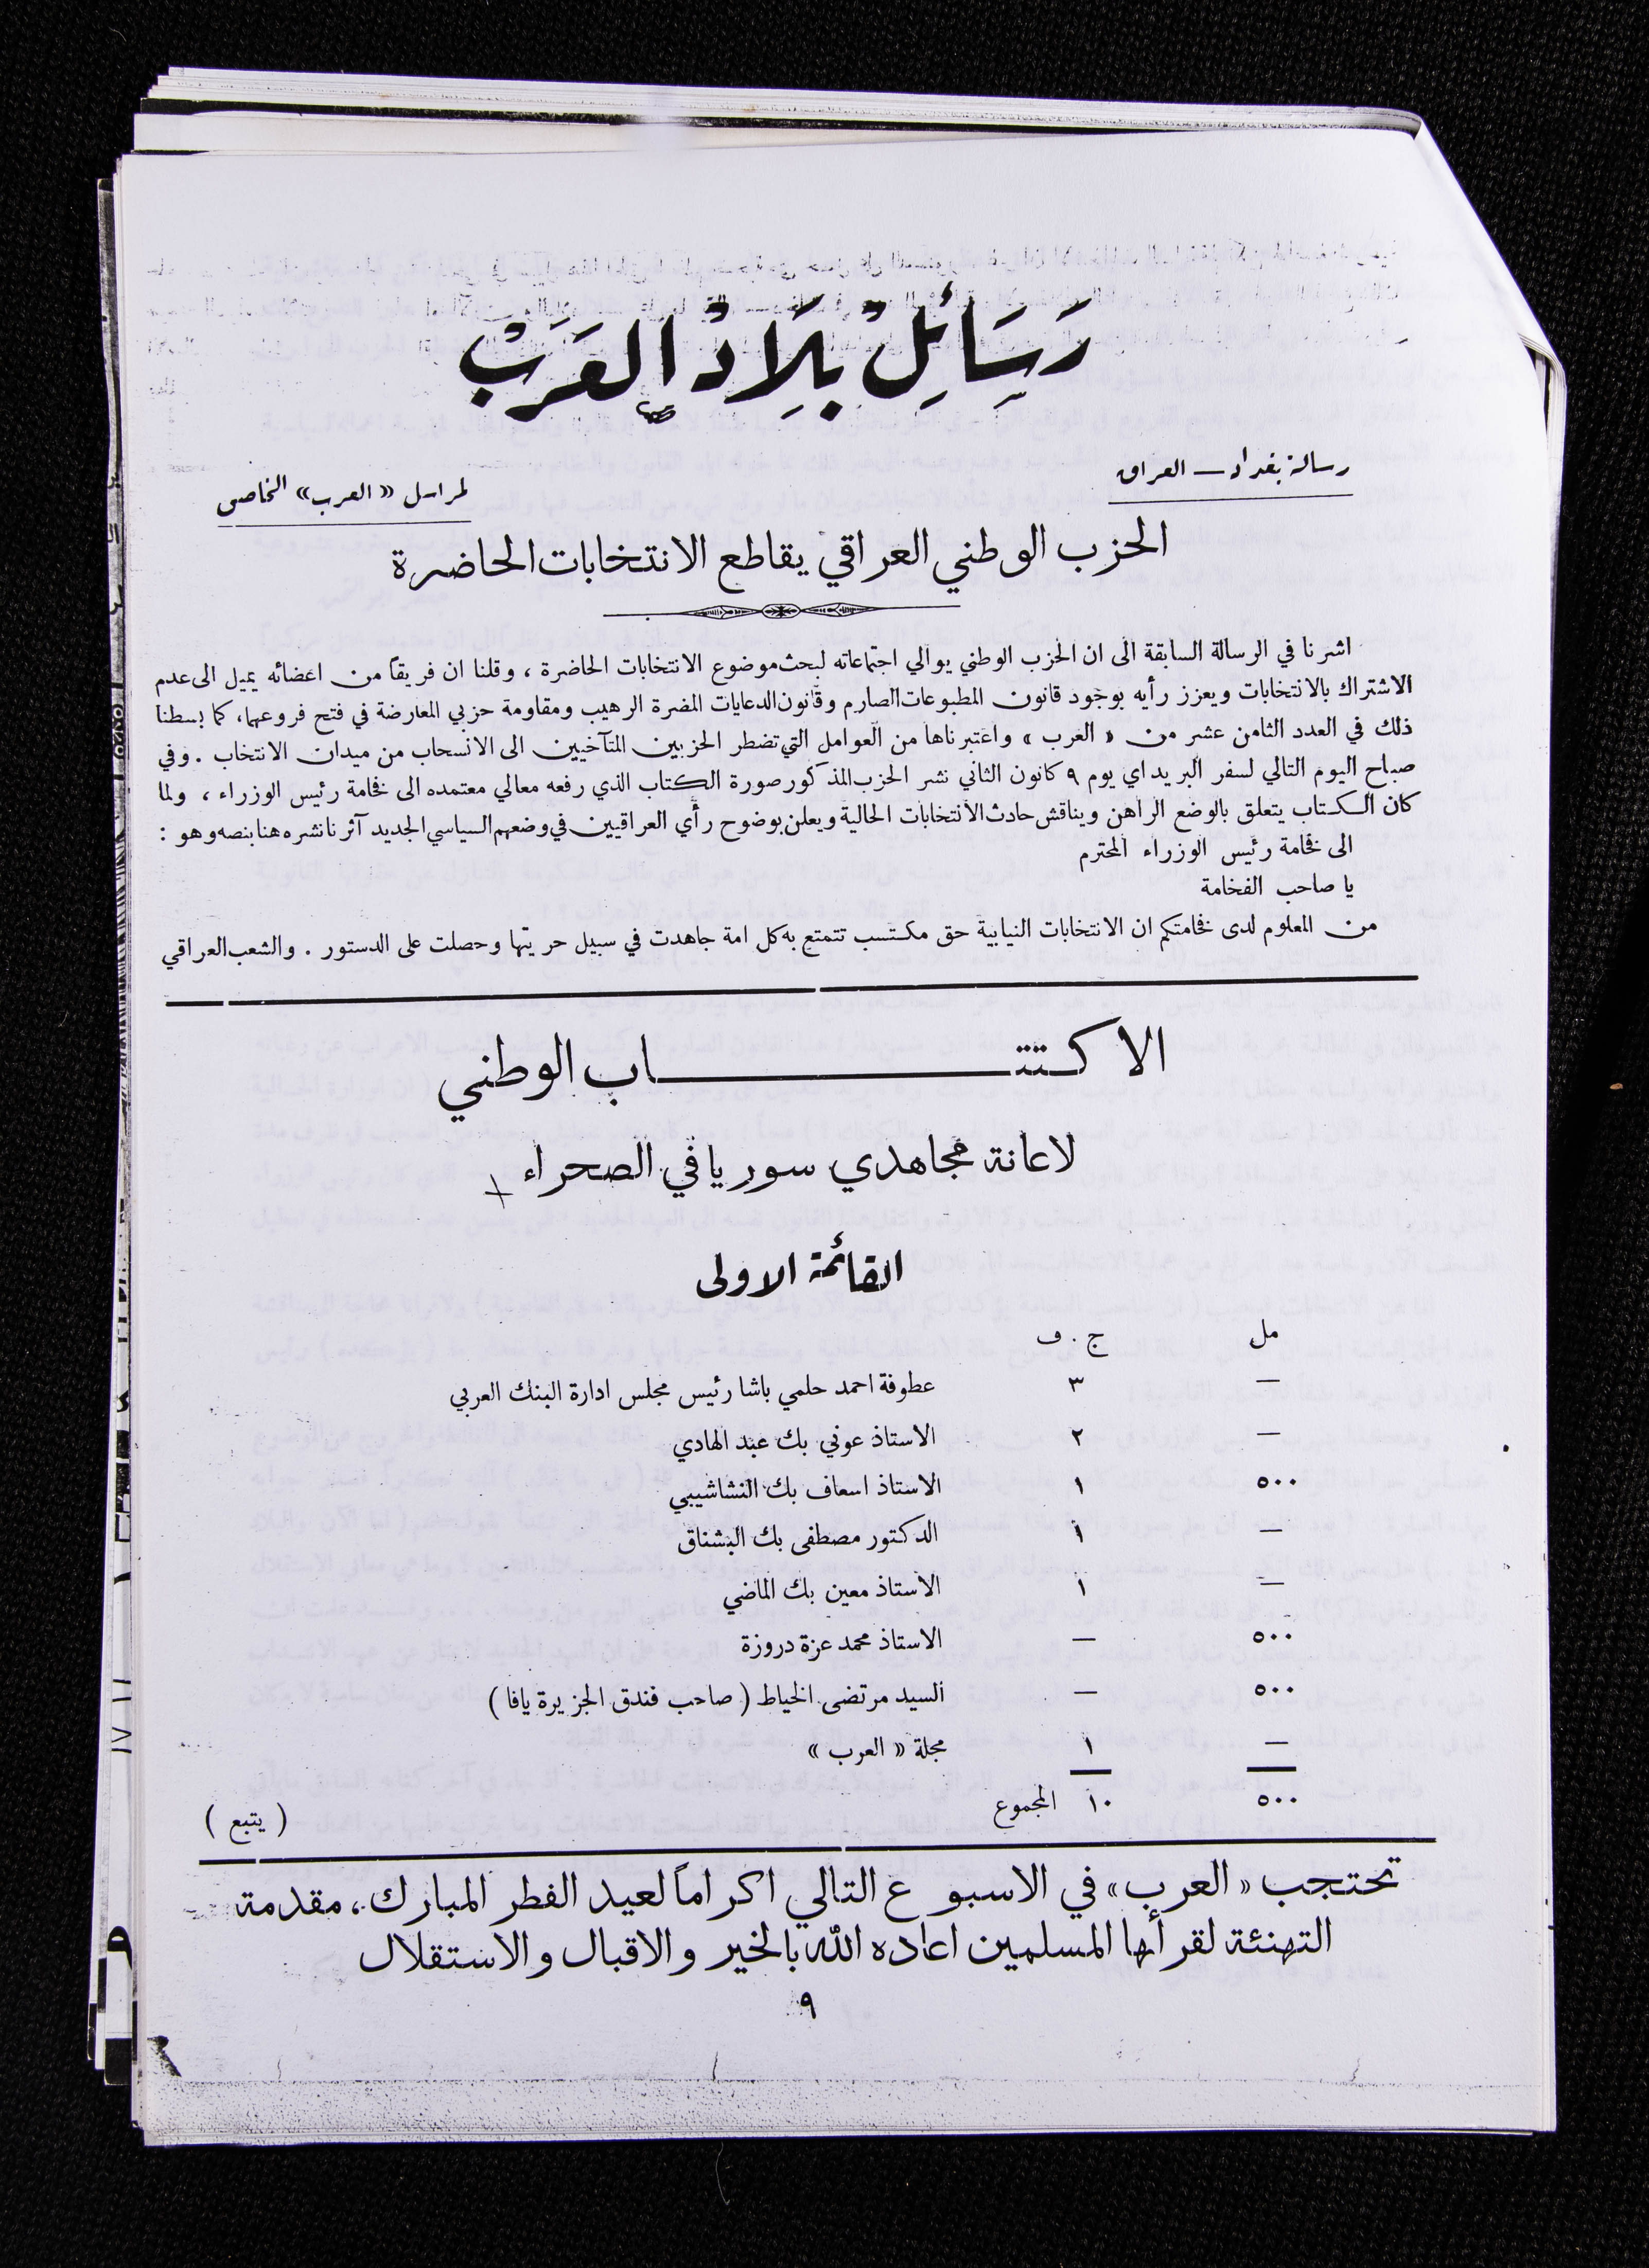 رَسَائِلُ بِلَادِ العَرَبْ
رسالة بغداد — العراق
لمراسل «العرب» الخاص
الحزب الوطني العراقي يقاطع الانتخابات الحاضرة
اشرنا في الرسالة السابقة الى ان الحزب الوطني يوالي اجتماعاته لبحث موضوع الانتخابات الحاضرة ، وقلنا ان فريقاً من اعضائه يميل الى عدم
الاشتراك بالانتخابات ويعزز رأيه بوجود قانون المطبوعات الصارم وقانون الدعايات المضرة الرهيب ومقاومة حزبي المعارضة في فتح فروعها، كما بسطنا
ذلك في العدد الثامن عشر من « العرب » واعتبرناها من العوامل التي تضطر الحزبين المتآخيين الى الانسحاب من ميدان الانتخاب . وفي
صباح اليوم التالي لسفر البريد اي يوم ٩ كانون الثاني نشر الحزب المذكور صورة الكتاب الذي رفعه معالي معتمده الى فخامة رئيس الوزراء ، ولما
كان الكتاب يتعلق بالوضع الراهن ويناقش حادث الانتخابات الحالية ويعلن بوضوح رأي العراقيين في وضعهم السياسي الجديد آثرنا نشره هنا بنصه وهو :
الى فخامة رئيس الوزراء المحترم
يا صاحب الفخامة
من المعلوم لدى فخامتكم ان الانتخابات النيابية حق مكتسب تتمتع به كل امة جاهدت في سبيل حريتها وحصلت على الدستور . والشعب العراقي
الاكتتـــــــاب الوطني
لاعانة مجاهدي سوريا في الصحراء
القائمة الاولى
مل ج . ف
— ٣ عطوفة احمد حلمي باشا رئيس مجلس ادارة البنك العربي
— ٢ الاستاذ عوني بك عبد الهادي
٥٠٠ ١ الاستاذ اسعاف بك النشاشيبي
— ١ الدكتور مصطفى بك البشناق
— ١ الاستاذ معين بك الماضي
٥٠٠ — الاستاذ محمد عزة دروزة
٥٠٠ — السيد مرتضى الخياط ( صاحب فندق الجزيرة يافا )
— ١ مجلة « العرب »
٥٠٠ ١٠ المجموع
( يتبع )
تحتجب «العرب» في الاسبوع التالي اكراماً لعيد الفطر المبارك، مقدمة
التهنئة لقرأها المسلمين اعاده الله بالخير والاقبال والاستقلال
٩